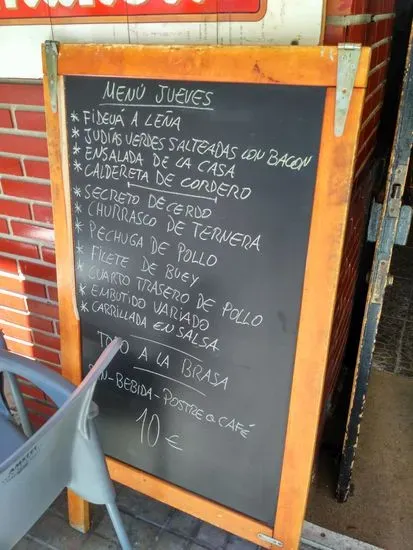 MENÚ JUEVES
* FIDEUÁ A LEÑA
* JUDIAS VERDES SALTEADAS CON BACON
* ENSALADA DE LA CASA
* CALDERETA DE CORDERO
* SECRETO DE CERDO
* CHURRASCO DE TERNERA
* PECHUGA DE POLLO
* FILETE DE BUEY
* CUARTO TRASERO DE POLLO
* EMBUTIDO VARIADO
* CARRILLADA EN SALSA
TODO A LA BRASA
-BEBIDA-POSTRE O CAFÉ
10 €